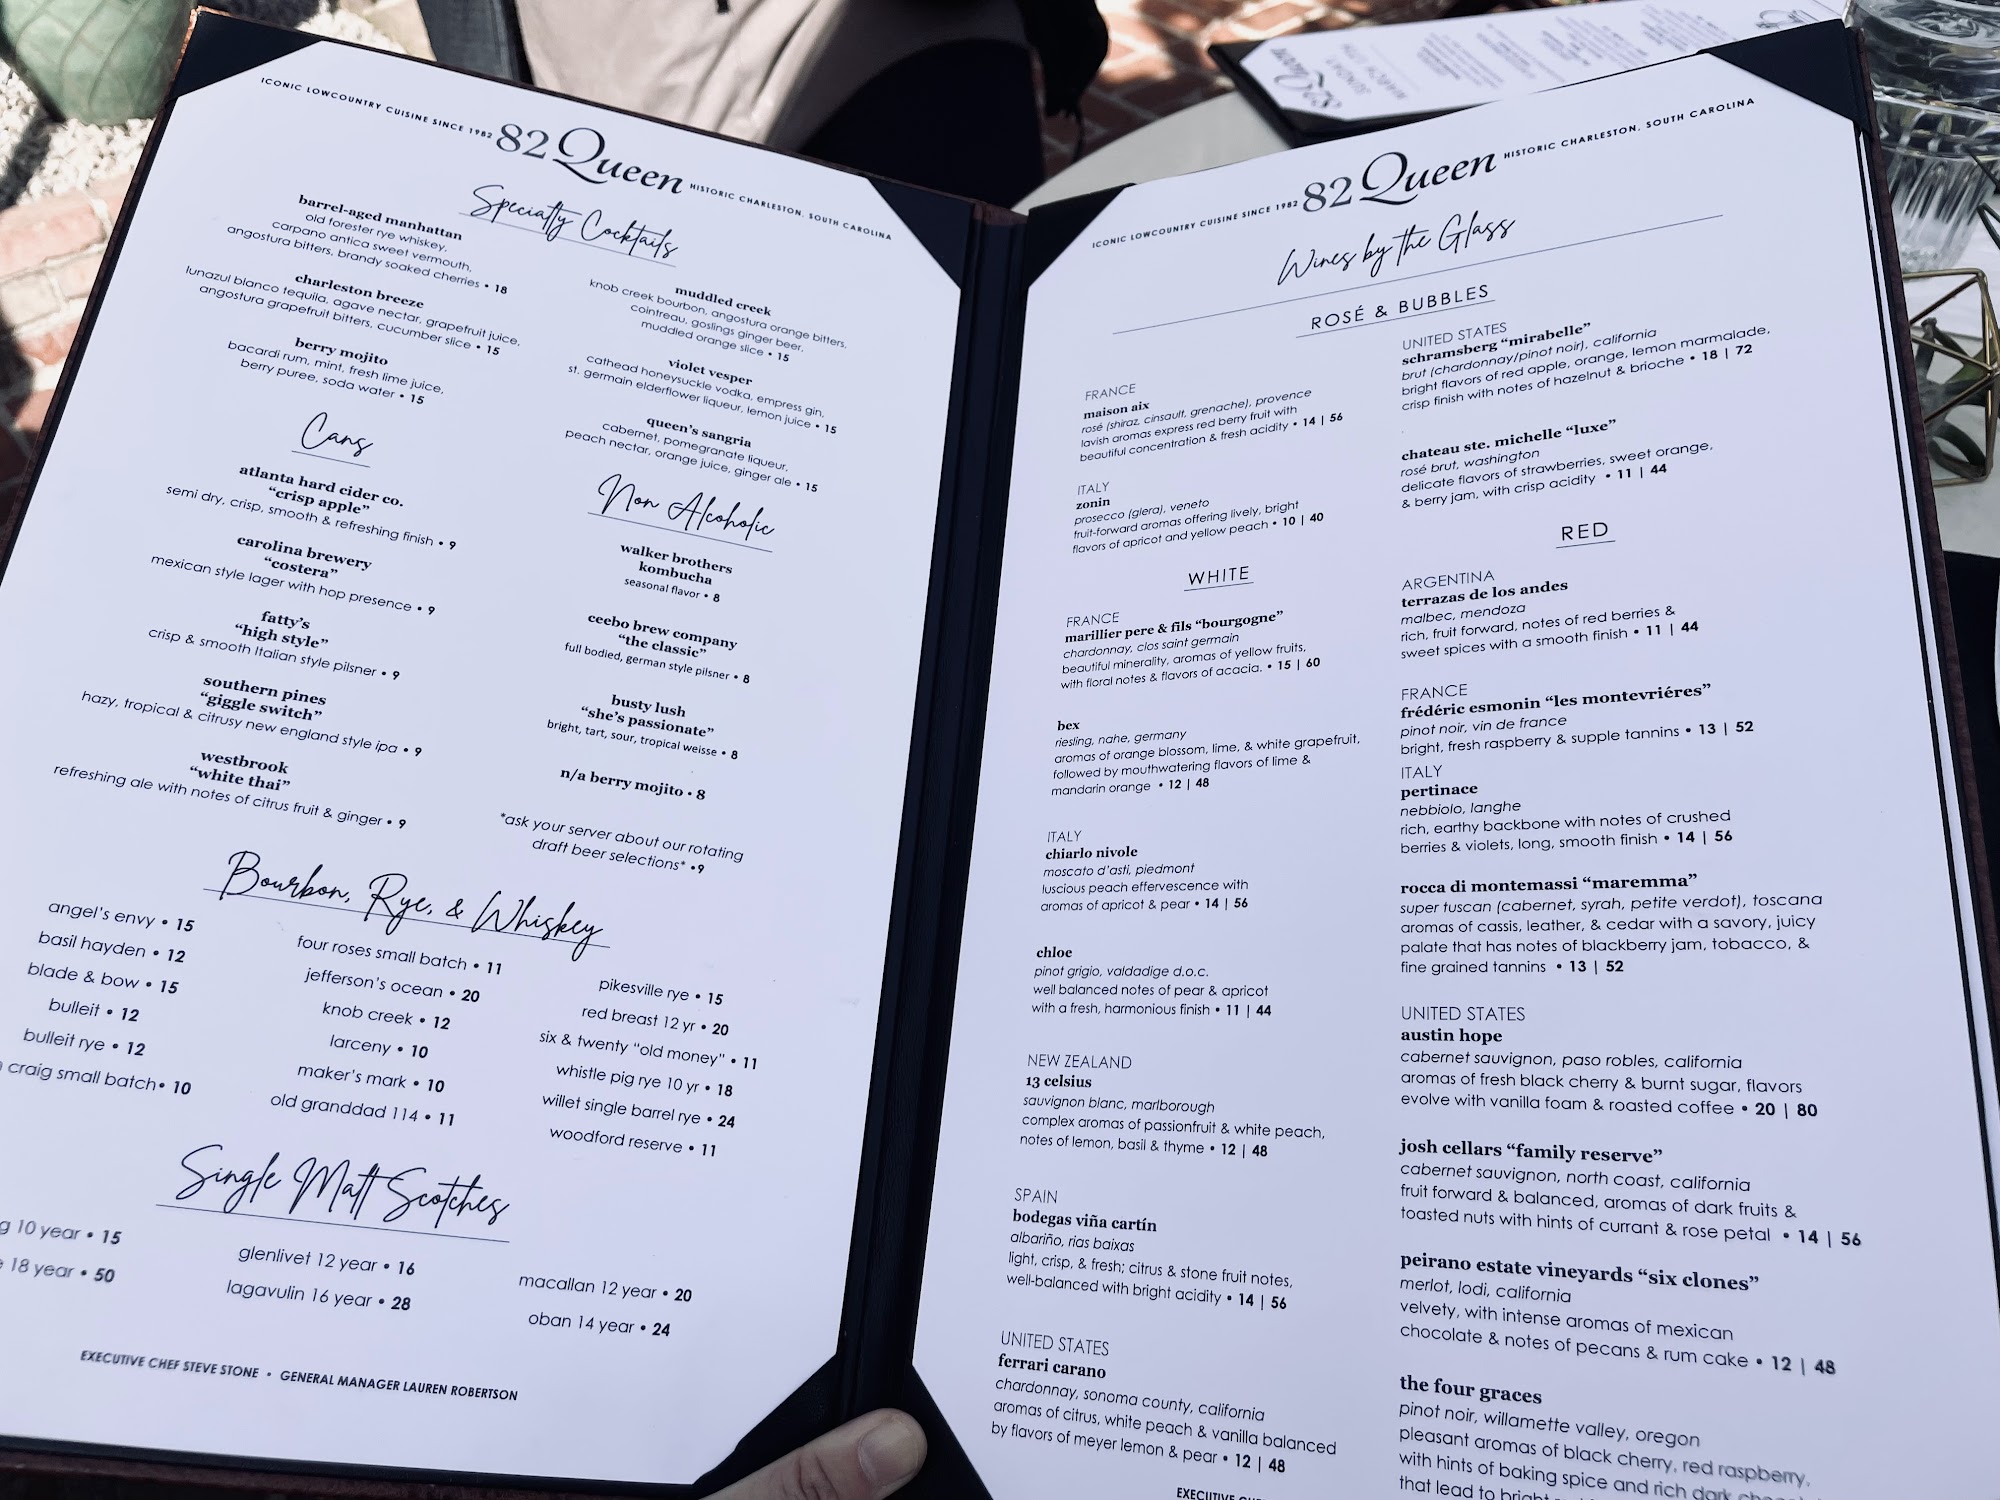 ICONIC LOWCOUNTRY CUISINE SINCE 1982 82 Queen HISTORIC CHARLESTON, SOUTH CAROLINA
Specialty Cocktails
barrel-aged manhattan
old forester rye whiskey,
carpano antica sweet vermouth,
angostura bitters, brandy soaked cherries • 18
charleston breeze
lunazul blanco tequila, agave nectar, grapefruit juice,
angostura grapefruit bitters, cucumber slice • 15
berry mojito
bacardi rum, mint, fresh lime juice,
berry puree, soda water • 15
muddled creek
knob creek bourbon, angostura orange bitters,
cointreau, goslings ginger beer,
muddled orange slice • 15
violet vesper
cathead honeysuckle vodka, empress gin,
st. germain elderflower liqueur, lemon juice • 15
queen's sangria
cabernet, pomegranate liqueur,
peach nectar, orange juice, ginger ale • 15
Cans
atlanta hard cider co.
“crisp apple”
semi dry, crisp, smooth & refreshing finish • 9
carolina brewery
“costera”
mexican style lager with hop presence • 9
fatty's
“high style”
crisp & smooth Italian style pilsner • 9
southern pines
“giggle switch”
hazy, tropical & citrusy new england style ipa • 9
westbrook
“white thai”
refreshing ale with notes of citrus fruit & ginger • 9
Non Alcoholic
walker brothers
kombucha
seasonal flavor • 8
ceebo brew company
“the classic”
full bodied, german style pilsner • 8
busty lush
“she's passionate”
bright, tart, sour, tropical weisse • 8
n/a berry mojito • 8
*ask your server about our rotating
draft beer selections* •9
Bourbon, Rye, & Whiskey
angel's envy • 15
basil hayden • 12
blade & bow • 15
bulleit • 12
bulleit rye • 12
craig small batch• 10
four roses small batch • 11
jefferson's ocean • 20
knob creek • 12
larceny • 10
maker's mark • 10
old granddad 114 • 11
pikesville rye • 15
red breast 12 yr • 20
six & twenty “old money” • 11
whistle pig rye 10 yr • 18
willet single barrel rye • 24
woodford reserve • 11
Single Malt Scotches
10 year • 15
18 year • 50
glenlivet 12 year • 16
lagavulin 16 year • 28
macallan 12 year • 20
oban 14 year • 24
EXECUTIVE CHEF STEVE STONE • GENERAL MANAGER LAUREN ROBERTSON
ICONIC LOWCOUNTRY CUISINE SINCE 1982 82 Queen HISTORIC CHARLESTON, SOUTH CAROLINA
Wines by the Glass
ROSÉ & BUBBLES
FRANCE
maison aix
rosé (shiraz, cinsault, grenache), provence
lavish aromas express red berry fruit with
beautiful concentration & fresh acidity • 14 | 56
ITALY
zonin
prosecco (glera), veneto
fruit-forward aromas offering lively, bright
flavors of apricot and yellow peach • 10 | 40
UNITED STATES
schramsberg “mirabelle”
brut (chardonnay/pinot noir), california
bright flavors of red apple, orange, lemon marmalade,
crisp finish with notes of hazelnut & brioche • 18 | 72
chateau ste. michelle “luxe”
rosé brut, washington
delicate flavors of strawberries, sweet orange,
& berry jam, with crisp acidity • 11 | 44
WHITE
FRANCE
marillier pere & fils “bourgogne”
chardonnay, clos saint germain
beautiful minerality, aromas of yellow fruits,
with floral notes & flavors of acacia. • 15 | 60
bex
riesling, nahe, germany
aromas of orange blossom, lime, & white grapefruit,
followed by mouthwatering flavors of lime &
mandarin orange • 12 | 48
ITALY
chiarlo nivole
moscato d'asti, piedmont
luscious peach effervescence with
aromas of apricot & pear • 14 | 56
chloe
pinot grigio, valdadige d.o.c.
well balanced notes of pear & apricot
with a fresh, harmonious finish • 11 | 44
NEW ZEALAND
13 celsius
sauvignon blanc, marlborough
complex aromas of passionfruit & white peach,
notes of lemon, basil & thyme • 12 | 48
SPAIN
bodegas viña cartín
albariño, rias baixas
light, crisp, & fresh; citrus & stone fruit notes,
well-balanced with bright acidity • 14 | 56
UNITED STATES
ferrari carano
chardonnay, sonoma county, california
aromas of citrus, white peach & vanilla balanced
by flavors of meyer lemon & pear • 12 | 48
RED
ARGENTINA
terrazas de los andes
malbec, mendoza
rich, fruit forward, notes of red berries &
sweet spices with a smooth finish • 11 | 44
FRANCE
frédéric esmonin “les montevriéres”
pinot noir, vin de france
bright, fresh raspberry & supple tannins • 13 | 52
ITALY
pertinace
nebbiolo, langhe
rich, earthy backbone with notes of crushed
berries & violets, long, smooth finish • 14 | 56
rocca di montemassi “maremma”
super tuscan (cabernet, syrah, petite verdot), toscana
aromas of cassis, leather, & cedar with a savory, juicy
palate that has notes of blackberry jam, tobacco, &
fine grained tannins • 13 | 52
UNITED STATES
austin hope
cabernet sauvignon, paso robles, california
aromas of fresh black cherry & burnt sugar, flavors
evolve with vanilla foam & roasted coffee • 20 | 80
josh cellars “family reserve”
cabernet sauvignon, north coast, california
fruit forward & balanced, aromas of dark fruits &
toasted nuts with hints of currant & rose petal • 14 | 56
peirano estate vineyards “six clones”
merlot, lodi, california
velvety, with intense aromas of mexican
chocolate & notes of pecans & rum cake • 12 | 48
the four graces
pinot noir, willamette valley, oregon
pleasant aromas of black cherry, red raspberry,
with hints of baking spice and rich dark
that lead to
EXECUTIVE
82 Queen
SUNDAY